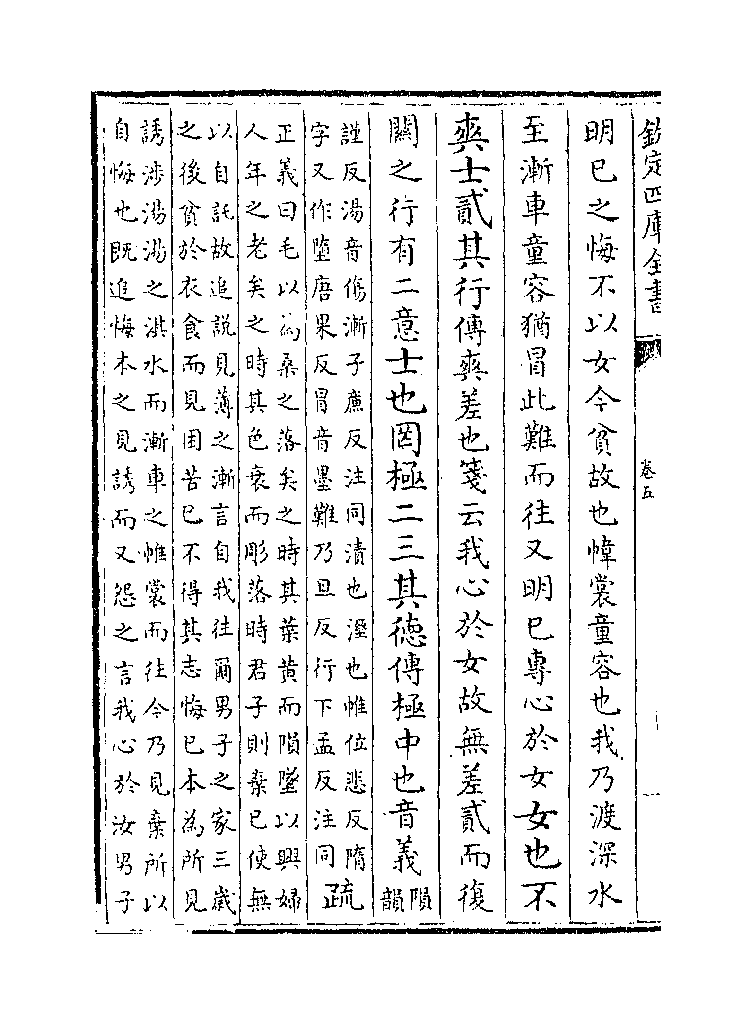 欽定四庫全書
卷五
明已之悔不以女今貧故也幃裳童容也我乃渡深水
至漸車童容猶冒此難而往又明已專心於女女也不
爽士貳其行傳爽差也箋云我心於女故無差貳而復
關之行有二意士也罔極二三其徳傳極中也音義隕韻
謹反湯音傷漸子廉反注同漬也溼也帷位悲反隋
字又作墮唐果反冒音墨難乃旦反行下孟反注同疏
正義曰毛以為桑之落矣之時其葉黄而隕墜以興婦
人年之老矣之時其色衰而彫落時君子則棄已使無
以自託故追說見薄之漸言自我往爾男子之家三歲
之後貧於衣食而見困苦已不得其志悔已本為所見
誘涉湯湯之淇水而漸車之帷裳而往今乃見棄所以
自悔也既追悔本之見誘而又怨之言我心於汝男子